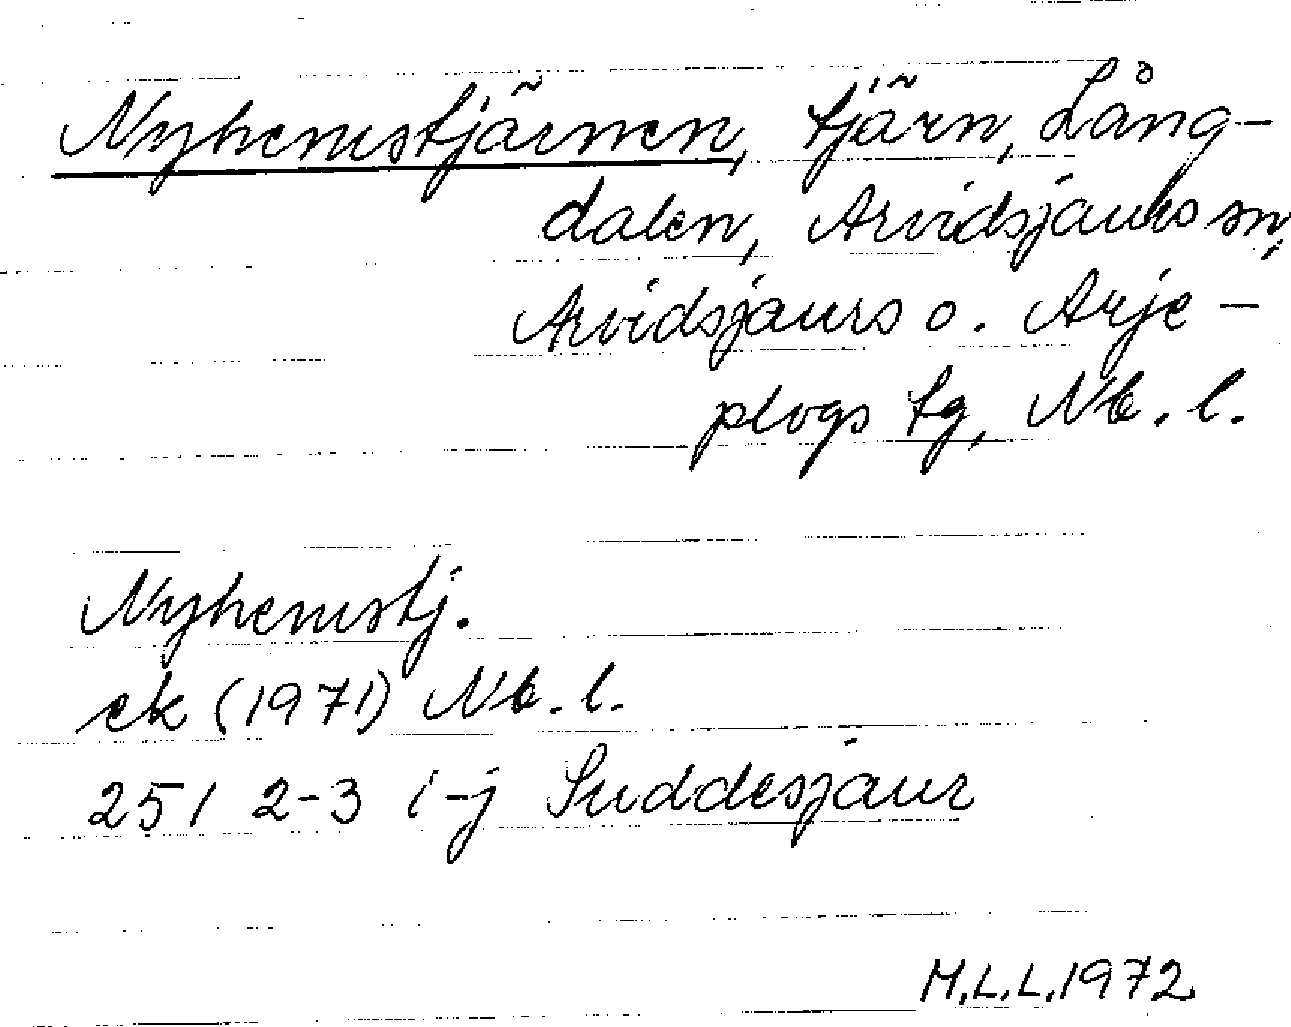 Nyhemstjärnen, tjärn, Lång-
dalen, Arvidsjaurs sn,
Arvidsjaurs o. Arje-
plogs tg, Nb. l.
Nyhemstj.
ek (1971) Nb. l.
25 I 2-3 i-j Suddesjaur
M.L.L. 1972